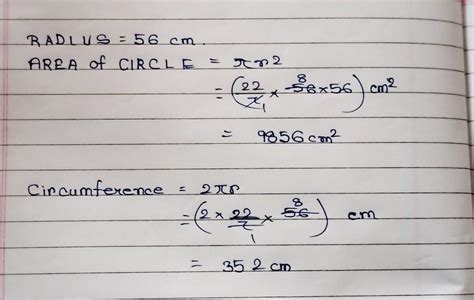 RADIUS = 56 cm.
AREA of CIRCLE = πr2
= (22/7 1 × 56 8 × 56) cm²
= 9856 cm²
Circumference = 2πr
= (2 × 22/7 1 × 56 8) cm
= 352 cm